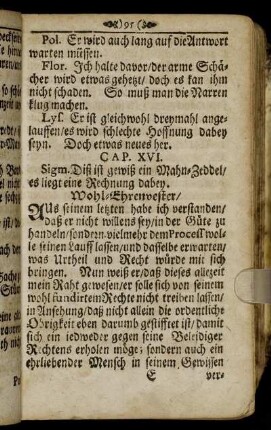 )91(
Pol. Er wird auch lang auf die Antwort
warten müssen.
Flor. Ich halte davor/der arme Schä-
cher wird etwas gehetzt/ doch es kan ihm
nicht schaden. So muß man die Narren
klug machen.
Lys. Er ist gleichwohl dreymahl ange-
lauffen/es wird schlechte Hoffnung dabey
seyn. Doch etwas neues her.
CAP. XVI.
Sigm. Diß ist gewiß ein Mahn-Zeddel/
es liegt eine Rechnung dabey.
Wohl-Ehrenvester/
Aus seinem letzten habe ich verstanden/
daß er nicht willens sey/in der Güte zu
handeln/sondern vielmehr dem Process wol-
le seinen Lauff lassen/und dasselbe erwarten/
was Urtheil und Recht würde mit sich
bringen. Nun weiß er/daß dieses allezeit
mein Raht gewesen/er solle sich von seinem
wohl fundirtem Rechte nicht treiben lassen/
in Ansehung/daß nicht allein die ordentliche
Obrigkeit eben darumb gestifftet ist/damit
sich ein iedweder gegen seine Beleidiger
Rechtens erholen möge; sondern auch ein
ehrliebender Mensch in seinem Gewissen
E ver-